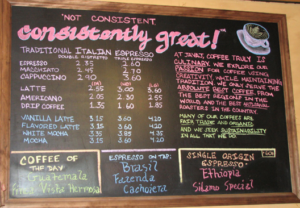 "NOT CONSISTENT
consistently great!"
TRADITIONAL ITALIAN ESPRESSO
DOUBLE RISTRETTO TRIPLE ESPRESSO
ESPRESSO 2.60
MACCHIATO 2.70
CAPPUCCINO 2.90 3.60
LATTE 2.55 3.00 3.60
AMERICANO 2.05 2.30
DRIP COFFEE 1.35 1.60 1.85
VANILLA LATTE 3.15 3.60 4.20
FLAVORED LATTE 3.15 3.60 4.20
WHITE MOCHA 3.35 4.35
MOCHA 3.15 3.60 4.20
COFFEE TRULY IS
CULINARY. WE EXPLORE OUR
PASSION FOR COFFEE USING
CREATIVITY WHILE MAINTAINING
TRADITION. WE ONLY SERVE THE
ABSOLUTE BEST COFFEE FROM
THE BEST REGIONS IN THE
WORLD, AND THE BEST ARTISANAL
ROASTERS IN THE COUNTRY.
MANY OF OUR COFFEES ARE
FAIR TRADE AND ORGANIC
AND WE SEEK SUSTAINABILITY
IN ALL THAT WE DO
COFFEE OF
THE DAY
Guatemala
Vista Hermosa
ESPRESSO ON TAP:
Brazil
Fazenda
Cachoiera
SINGLE ORIGIN
ESPRESSO
Ethiopia
Sidamo Special